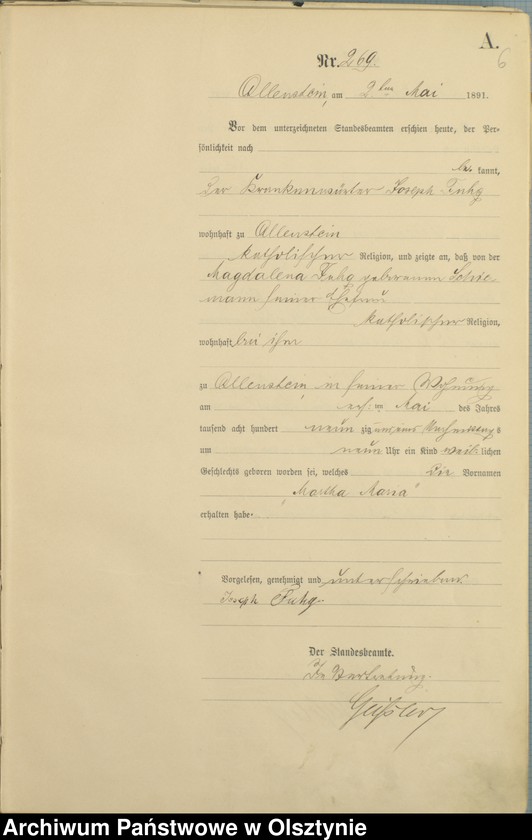 A.
6
Nr. 269.
Allenstein, am 2ten Mai 1891.
Vor dem unterzeichneten Standesbeamten erschien heute, der Per-
sönlichkeit nach
be kannt,
der Krankenwärter Joseph Fuhg
wohnhaft zu Allenstein
katholischer Religion, und zeigte an, daß von der
Magdalena Fuhg geborenen Schie
mann seiner Ehefrau
katholischer Religion,
wohnhaft bei ihm
zu Allenstein, in seiner Wohnung
am ersten Mai des Jahres
tausend acht hundert neun zig und eins Nachmittags
um neun Uhr ein Kind weib lichen
Geschlechts geboren worden sei, welches die Vornamen
"Martha Maria"
erhalten habe.
Vorgelesen, genehmigt und unterschrieben
Joseph Fuhg.
Der Standesbeamte.
In Vertretung.
Archiwum Państwowe w Olsztynie